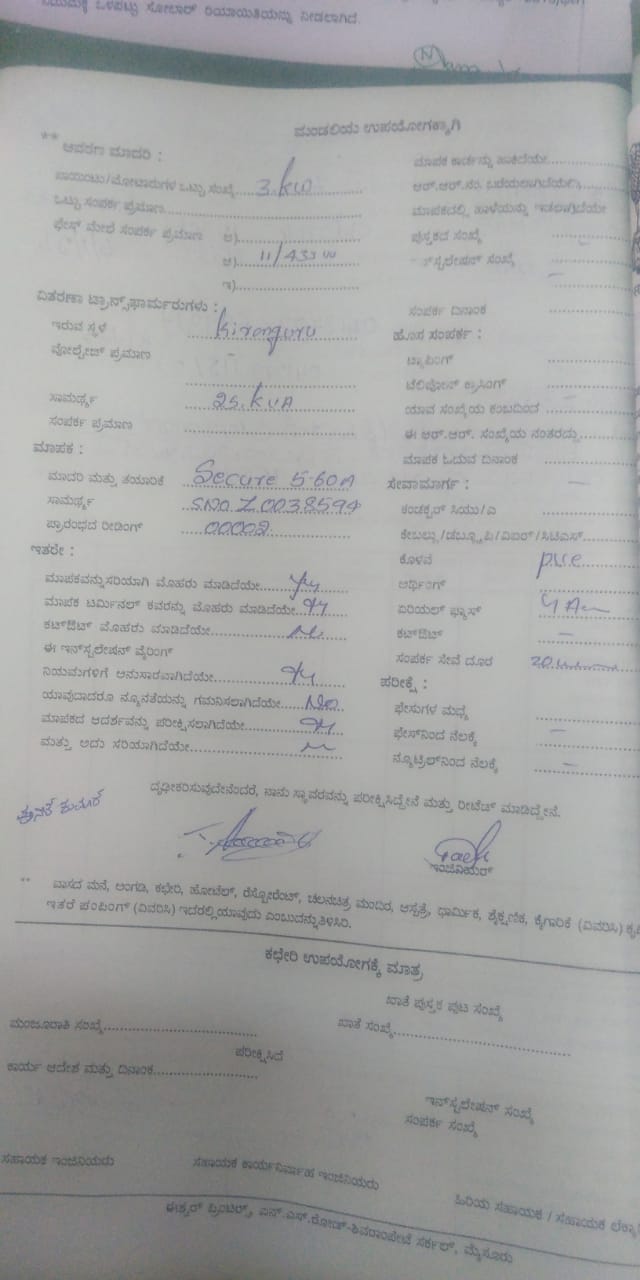 ಒಳಪಟ್ಟು ಸೋಲಾರ್ ರಿಯಾಯಿತಿಯನ್ನು ನೀಡಲಾಗಿದೆ.
ಮಂಡಲಿಯ ಉಪಯೋಗಕ್ಕಾಗಿ
** ಆವರಣ ಮಾದರಿ :
ಪಾಯಿಂಟು/ಮೋಟಾರುಗಳ ಒಟ್ಟು ಸಂಖ್ಯೆ 3.kW
ಒಟ್ಟು ಸಂಪರ್ಕ ಪ್ರಮಾಣ
ಫೇಸ್ ಮೇಲೆ ಸಂಪರ್ಕ ಪ್ರಮಾಣ ಅ)
ಆ) 11/433
ಇ)
ವಿತರಣಾ ಟ್ರಾನ್ಸ್‌ಫಾರ್ಮರುಗಳು :
ಇರುವ ಸ್ಥಳ Kironguru
ವೋಲ್ಟೇಜ್ ಪ್ರಮಾಣ
ಸಾಮರ್ಥ್ಯ 25.KVA
ಸಂಪರ್ಕ ಪ್ರಮಾಣ
ಮಾಪಕ :
ಮಾದರಿ ಮತ್ತು ತಯಾರಿಕೆ Secure 5-60A
ಸಾಮರ್ಥ್ಯ S.No. Z0038594
ಪ್ರಾರಂಭದ ರೀಡಿಂಗ್ 00002
ಇತರೇ :
ಮಾಪಕವನ್ನು ಸರಿಯಾಗಿ ಮೊಹರು ಮಾಡಿದೆಯೇ
ಮಾಪಕ ಟರ್ಮಿನಲ್ ಕವರನ್ನು ಮೊಹರು ಮಾಡಿದೆಯೇ
ಕಟ್‌ಔಟ್ ಮೊಹರು ಮಾಡಿದೆಯೇ
ಈ ಇನ್‌ಸ್ಟಲೇಷನ್ ವೈರಿಂಗ್
ನಿಯಮಗಳಿಗೆ ಅನುಸಾರವಾಗಿದೆಯೇ
ಯಾವುದಾದರೂ ನ್ಯೂನತೆಯನ್ನು ಗಮನಿಸಲಾಗಿದೆಯೇ No.
ಮಾಪಕದ ಆದರ್ಶವನ್ನು ಪರೀಕ್ಷಿಸಲಾಗಿದೆಯೇ
ಮತ್ತು ಅದು ಸರಿಯಾಗಿದೆಯೇ
ಮಾಪಕ ಕಾರ್ಡನ್ನು ಹಾಕಿದೆಯೇ
ಆರ್.ಆರ್.ನಂ. ಬರೆಯಲಾಗಿದೆಯೇ
ಮಾಪಕದಲ್ಲಿ ಹಾಳೆಯನ್ನು ಇಡಲಾಗಿದೆಯೇ
ಪುಸ್ತಕದ ಸಂಖ್ಯೆ
ಸಂಖ್ಯೆ
ಸಂಪರ್ಕ ದಿನಾಂಕ
ಹೊಸ ಸಂಪರ್ಕ :
ಟ್ಯಾಪಿಂಗ್
ಟೆಲಿಫೋನ್ ಕ್ರಾಸಿಂಗ್
ಯಾವ ಸಂಖ್ಯೆಯ ಕಂಬದಿಂದ
ಈ ಆರ್.ಆರ್. ಸಂಖ್ಯೆಯ ನಂತರದ್ದು
ಮಾಪಕ ಓದುವ ದಿನಾಂಕ
ಸೇವಾಮಾರ್ಗ :
ಕಂಡಕ್ಟರ್ ಸಿಯು/ಎ
ಕೇಬಲ್ಲು/ಡಬ್ಲ್ಯೂಪಿ/ವಿಐಆರ್/ಸಿಟಿಎಸ್
ಕೊಳವೆ pvc
ಅರ್ಥಿಂಗ್
ಏರಿಯಲ್ ಫ್ಯೂಸ್
ಕಟ್‌ಔಟ್
ಸಂಪರ್ಕ ಸೇವೆ ದೂರ 20.
ಪರೀಕ್ಷೆ :
ಫೇಸುಗಳ ಮಧ್ಯೆ
ಫೇಸ್‌ನಿಂದ ನೆಲಕ್ಕೆ
ನ್ಯೂಟ್ರಲ್‌ನಿಂದ ನೆಲಕ್ಕೆ
ದೃಢೀಕರಿಸುವುದೇನೆಂದರೆ, ನಾನು ಸ್ಥಾವರವನ್ನು ಪರೀಕ್ಷಿಸಿದ್ದೇನೆ ಮತ್ತು ರೀಟೆಡ್ ಮಾಡಿದ್ದೇನೆ.
ಪುನೀತ್ ಕುಮಾರ್
ಇಂಜಿನಿಯರ್
** ವಾಸದ ಮನೆ, ಅಂಗಡಿ, ಕಛೇರಿ, ಹೋಟೆಲ್, ರೆಸ್ಟೋರೆಂಟ್, ಚಲನಚಿತ್ರ ಮಂದಿರ, ಆಸ್ಪತ್ರೆ, ಧಾರ್ಮಿಕ, ಶೈಕ್ಷಣಿಕ, ಕೈಗಾರಿಕೆ (ವಿವರಿಸಿ)
ಇತರೆ ಪಂಪಿಂಗ್ (ವಿವರಿಸಿ) ಇದರಲ್ಲಿಯಾವುದು ಎಂಬುದನ್ನು ತಿಳಿಸಿರಿ.
ಕಛೇರಿ ಉಪಯೋಗಕ್ಕೆ ಮಾತ್ರ
ಖಾತೆ ಪುಸ್ತಕ ಪುಟ ಸಂಖ್ಯೆ
ಮಂಜೂರಾತಿ ಸಂಖ್ಯೆ
ಖಾತೆ ಸಂಖ್ಯೆ
ಪರೀಕ್ಷಿಸಿದೆ
ಕಾರ್ಯ ಆದೇಶ ಮತ್ತು ದಿನಾಂಕ
ಇನ್‌ಸ್ಟಲೇಷನ್ ಸಂಖ್ಯೆ
ಸಂಪರ್ಕ ಸಂಖ್ಯೆ
ಸಹಾಯಕ ಇಂಜಿನಿಯರು
ಸಹಾಯಕ ಕಾರ್ಯನಿರ್ವಾಹ ಇಂಜಿನಿಯರು
ಹಿರಿಯ ಸಹಾಯಕ / ಸಹಾಯಕ
ಈಶ್ವರ್ ಪ್ರಿಂಟರ್ಸ್, ಎನ್.ಎಸ್.ರೋಡ್-ಶಿವರಾಂಪೇಟೆ ಸರ್ಕಲ್, ಮೈಸೂರು